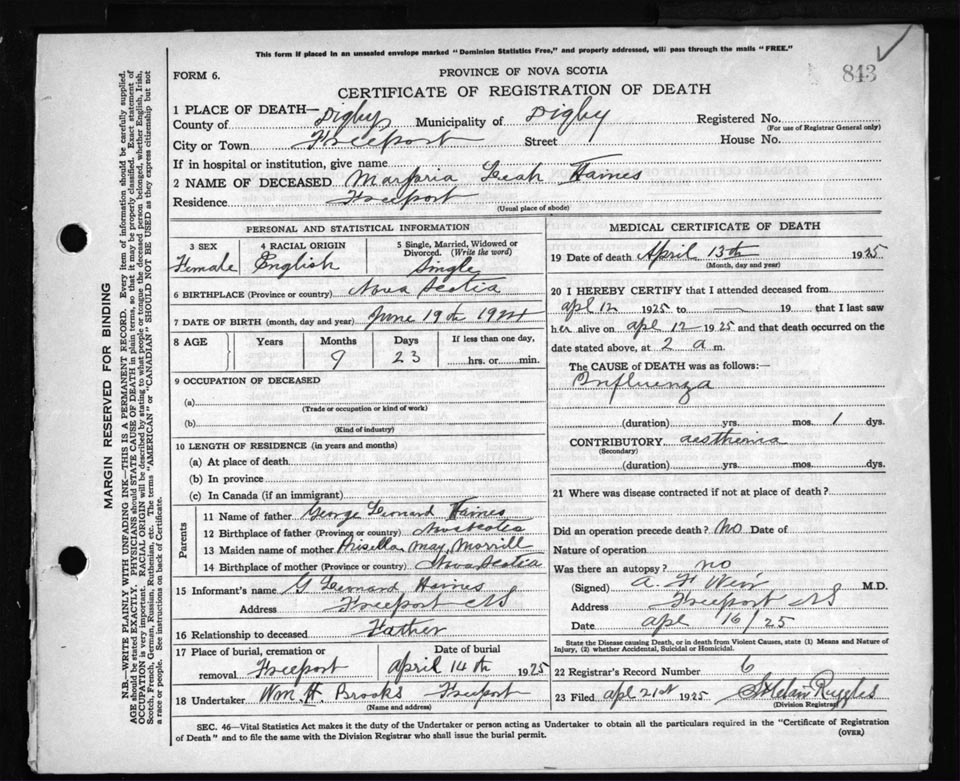 This form if placed in an unsealed envelope marked "Dominion Statistics Free," and properly addressed, will pass through the mails "FREE."
FORM 6.
PROVINCE OF NOVA SCOTIA
843
CERTIFICATE OF REGISTRATION OF DEATH
1 PLACE OF DEATH—
County of Digby Municipality of Digby Registered No.
(For use of Registrar General only)
City or Town Freeport Street House No.
If in hospital or institution, give name
2 NAME OF DECEASED Marjoria Leah Haines
Residence Freeport
(Usual place of abode)
PERSONAL AND STATISTICAL INFORMATION
3 SEX Female
4 RACIAL ORIGIN English
5 Single, Married, Widowed or Divorced. (Write the word) Single
6 BIRTHPLACE (Province or country) Nova Scotia
7 DATE OF BIRTH (month, day and year) June 19th 1924
8 AGE Years Months Days If less than one day,
9 23 hrs. or min.
9 OCCUPATION OF DECEASED
(a)
(Trade or occupation or kind of work)
(b)
(Kind of industry)
10 LENGTH OF RESIDENCE (in years and months)
(a) At place of death
(b) In province
(c) In Canada (if an immigrant)
Parents
11 Name of father George Leonard Haines
12 Birthplace of father (Province or country) Nova Scotia
13 Maiden name of mother Prisella May Morrill
14 Birthplace of mother (Province or country) Nova Scotia
15 Informant's name G Leonard Haines
Address Freeport NS
16 Relationship to deceased Father
17 Place of burial, cremation or removal Freeport
Date of burial April 14th 1925
18 Undertaker Wm. H. Brooks Freeport
(Name and address)
MEDICAL CERTIFICATE OF DEATH
19 Date of death April 13th 1925
(Month, day and year)
20 I HEREBY CERTIFY that I attended deceased from
apl 12 1925 to — 19 that I last saw
her alive on apl 12 1925 and that death occurred on the
date stated above, at 2 a m.
The CAUSE of DEATH was as follows:—
Influenza
(duration) yrs. mos. 1 dys.
CONTRIBUTORY aesthenia
(Secondary)
(duration) yrs. mos. dys.
21 Where was disease contracted if not at place of death?
Did an operation precede death? No Date of
Nature of operation
Was there an autopsy? no
(Signed) A. F Weir M.D.
Address Freeport NS
Date apl 16/25
State the Disease causing Death, or in death from Violent Causes, state (1) Means and Nature of
Injury, (2) whether Accidental, Suicidal or Homicidal.
22 Registrar's Record Number 6
23 Filed apl 21st 1925 Ruggles
(Division Registrar)
SEC. 46—Vital Statistics Act makes it the duty of the Undertaker or person acting as Undertaker to obtain all the particulars required in the "Certificate of Registration
of Death" and to file the same with the Division Registrar who shall issue the burial permit.
(OVER)
MARGIN RESERVED FOR BINDING
N.B.—WRITE PLAINLY WITH UNFADING INK—THIS IS A PERMANENT RECORD. Every item of information should be carefully supplied.
AGE should be stated EXACTLY. PHYSICIANS should STATE CAUSE OF DEATH in plain terms, so that it may be properly classified. Exact statement of
OCCUPATION is very important. RACIAL ORIGIN will be described by stating to what people or tongue the deceased person belonged, whether English, Irish,
Scotch, French, German, Russian, Ruthenian, etc. The terms "AMERICAN" or "CANADIAN" SHOULD NOT BE USED as they express citizenship but not
a race or people. See instructions on back of Certificate.